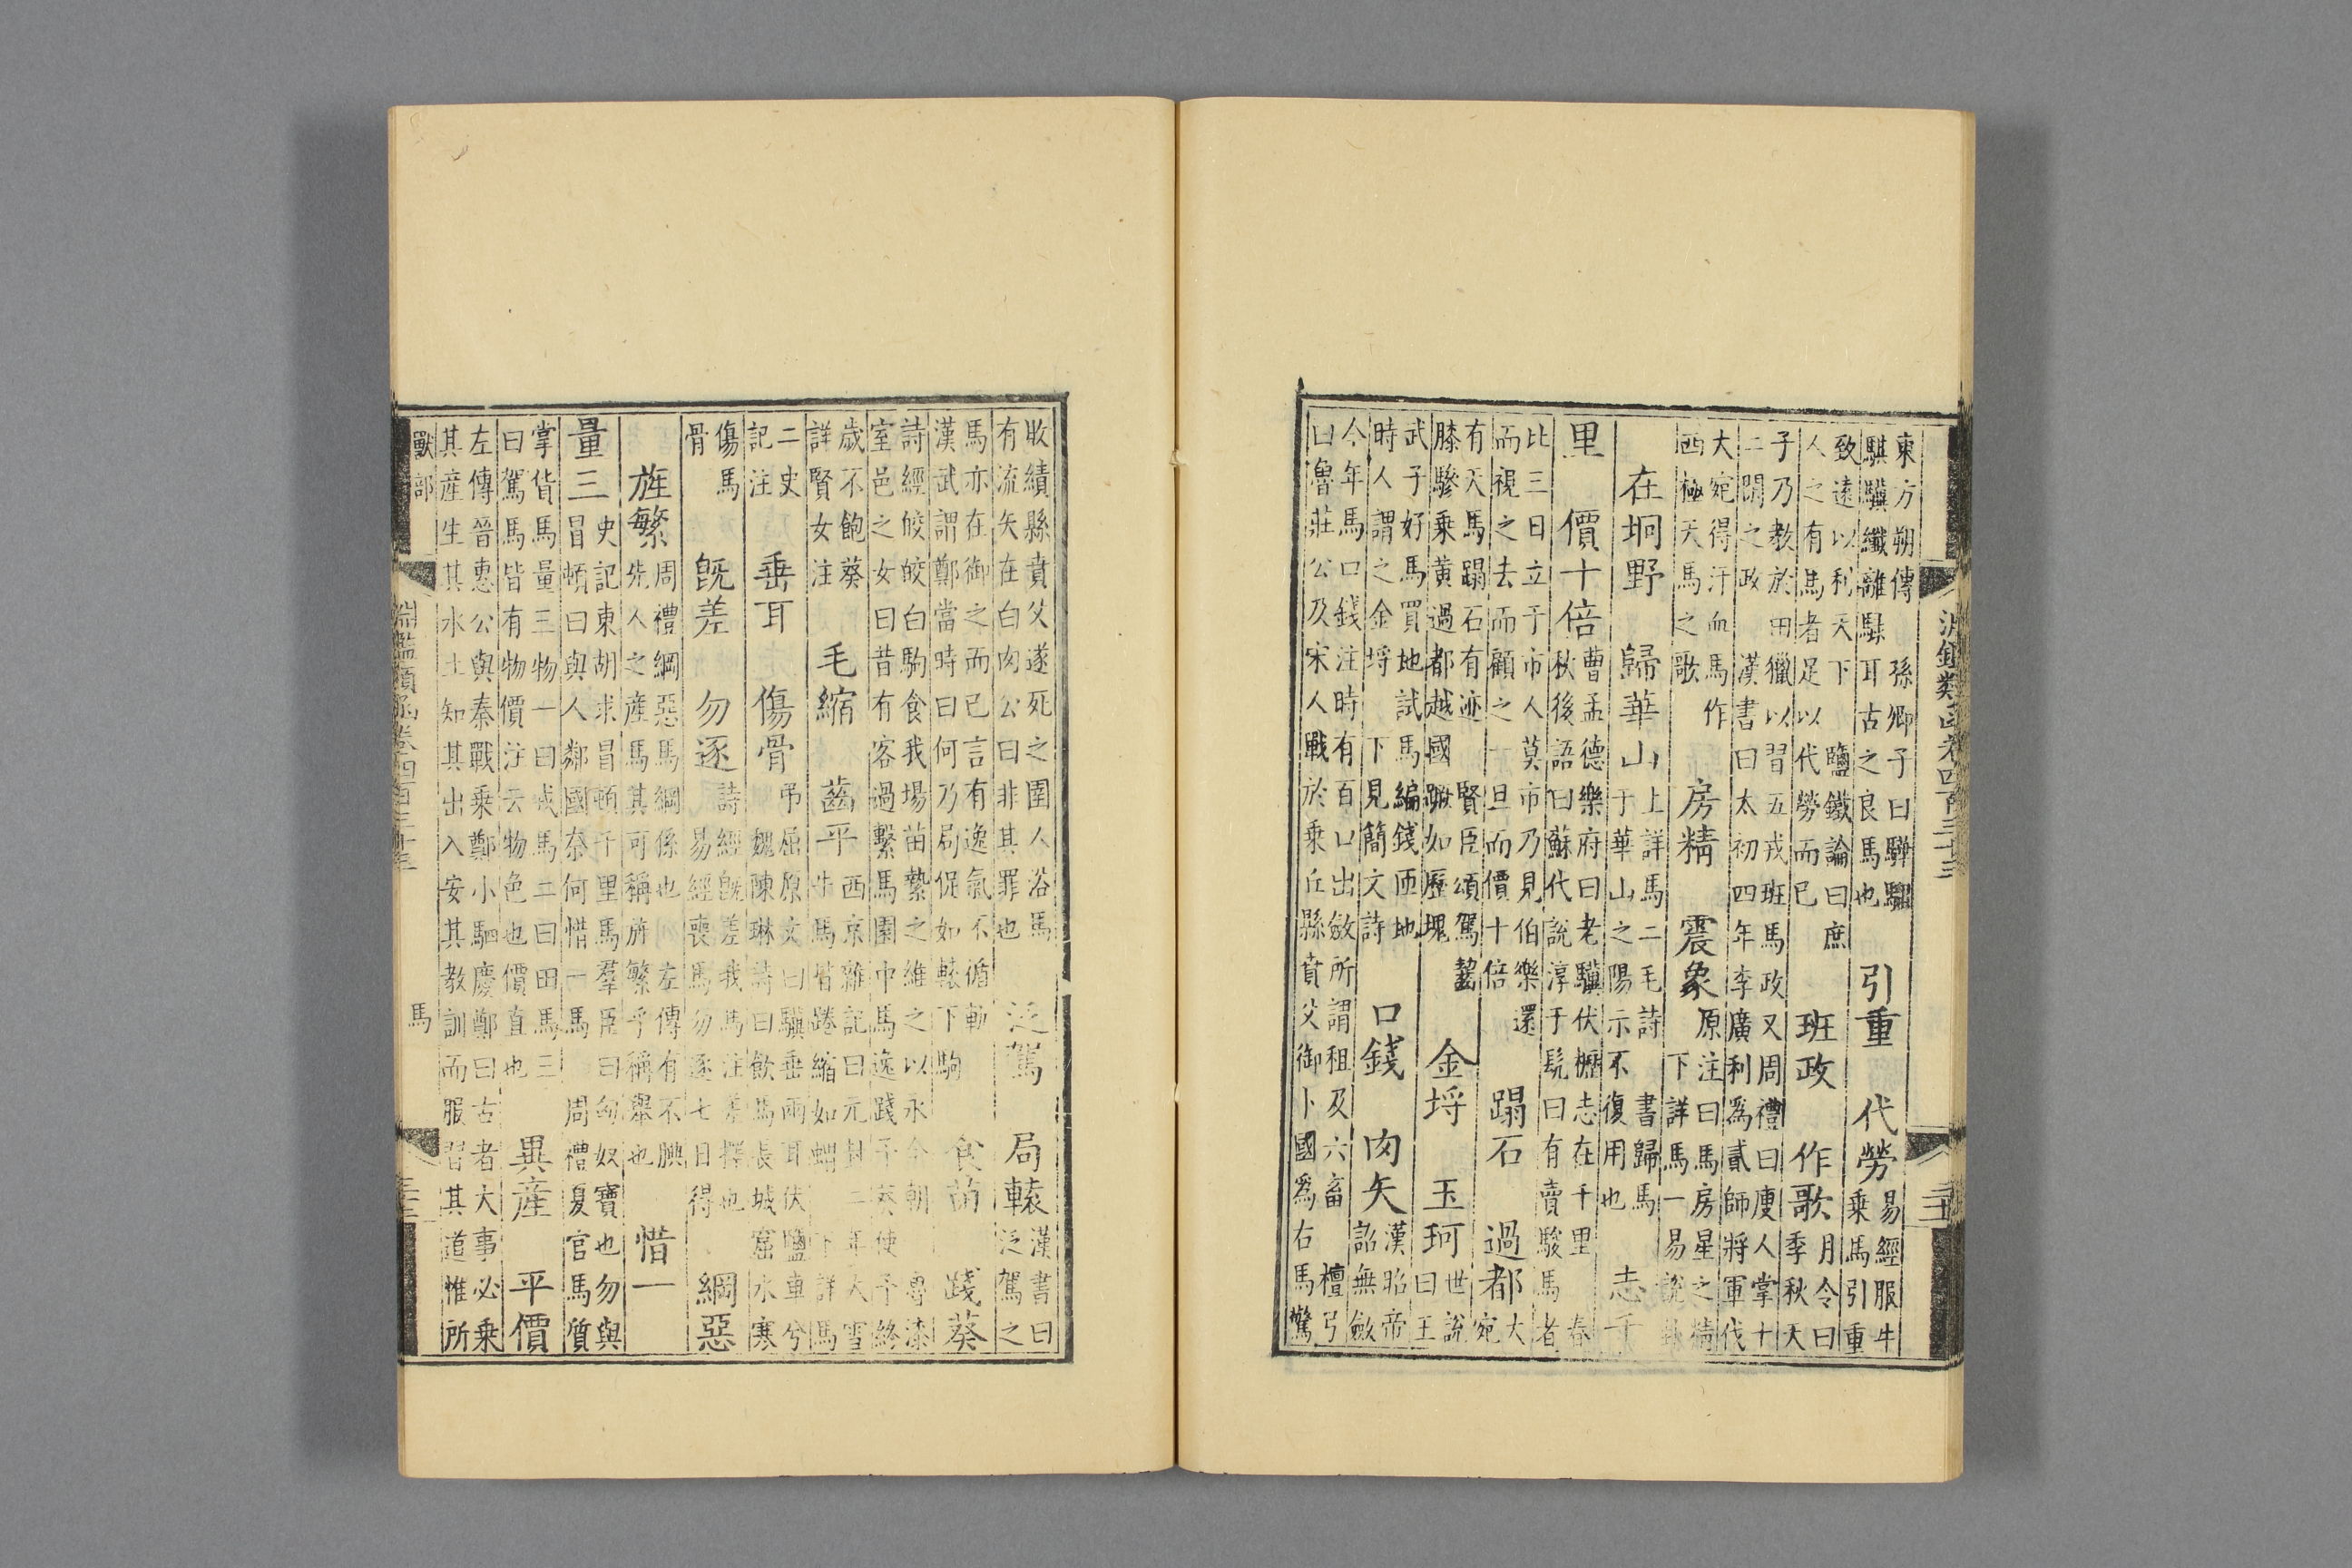 淵鑑類函卷四百三十三
東方朔傳　孫卿子曰驊騮
騏驥纖離騄耳古之良馬也
引重　代勞
易經服牛
乘馬引重
致遠以利天下　鹽鐵論曰庶
人之有馬者足以代勞而已
班政　作歌
月令曰
季秋天
子乃教於田獵以習五戎班馬政又周禮曰廋人掌十
二閑之政　漢書曰太初四年李廣利爲貳師將軍伐
大宛得汗血馬作
西極天馬之歌
房精　震象
原注曰馬房星之精
下詳馬一易說卦
在坰野　歸華山
上詳馬二毛詩　書歸馬
于華山之陽示不復用也
志千
里　價十倍
曹孟德樂府曰老驥伏櫪志在千里　春
秋後語曰蘇代說淳于髡曰有賣駿馬者
比三日立于市人莫市乃見伯樂還
而視之去而顧之一旦而價十倍
蹋石　過都
大
宛
有天馬蹋石有迹　賢臣頌駕齧
膝驂乘黃過都越國蹶如歷塊
金埒　玉珂
世說
曰王
武子好馬買地試馬編錢匝地
時人謂之金埒　下見簡文詩
口錢　肉矢
漢昭帝
詔無斂
今年馬口錢注時有百口出斂所謂租及六畜　檀弓
曰魯莊公及宋人戰於乘丘縣賁父御卜國爲右馬驚
敗績縣賁父遂死之圉人浴馬
有流矢在白肉公曰非其罪也
泛駕　局轅
漢書曰
泛駕之
馬亦在御之而已言有逸氣不循軌
漢武謂鄭當時曰何乃局促如轅下駒
食苗　踐葵
詩經皎皎白駒食我場苗縶之維之以永今朝　魯漆
室邑之女曰昔有客過繫馬園中馬逸踐予葵使予終
歲不飽葵
詳賢女注
毛縮　齒平
西京雜記曰元封二年大雪
牛馬皆踡縮如蝟　下詳馬
二史
記注
垂耳　傷骨
弔屈原文曰驥垂兩耳伏鹽車兮
魏陳琳詩曰飲馬長城窟水寒
傷馬
骨
旣差　勿逐
詩經旣差我馬注差擇也
易經喪馬勿逐七日得
綱惡
旌繁
周禮綱惡馬綱係也　左傳有不腆
先人之產馬其可稱旌繁乎稱舉也
惜一
量三
史記東胡求冒頓千里馬羣臣曰匈奴寶也勿與
冒頓曰與人鄰國奈何惜一馬　周禮夏官馬質
掌貨馬量三物一曰戎馬二曰田馬三
曰駑馬皆有物價注云物色也價直也
異產　平價
左傳晉惠公與秦戰乘鄭小駟慶鄭曰古者大事必乘
其產生其水土知其出入安其教訓而服習其道惟所
獸部　馬
淵鑑類函卷四百三十三